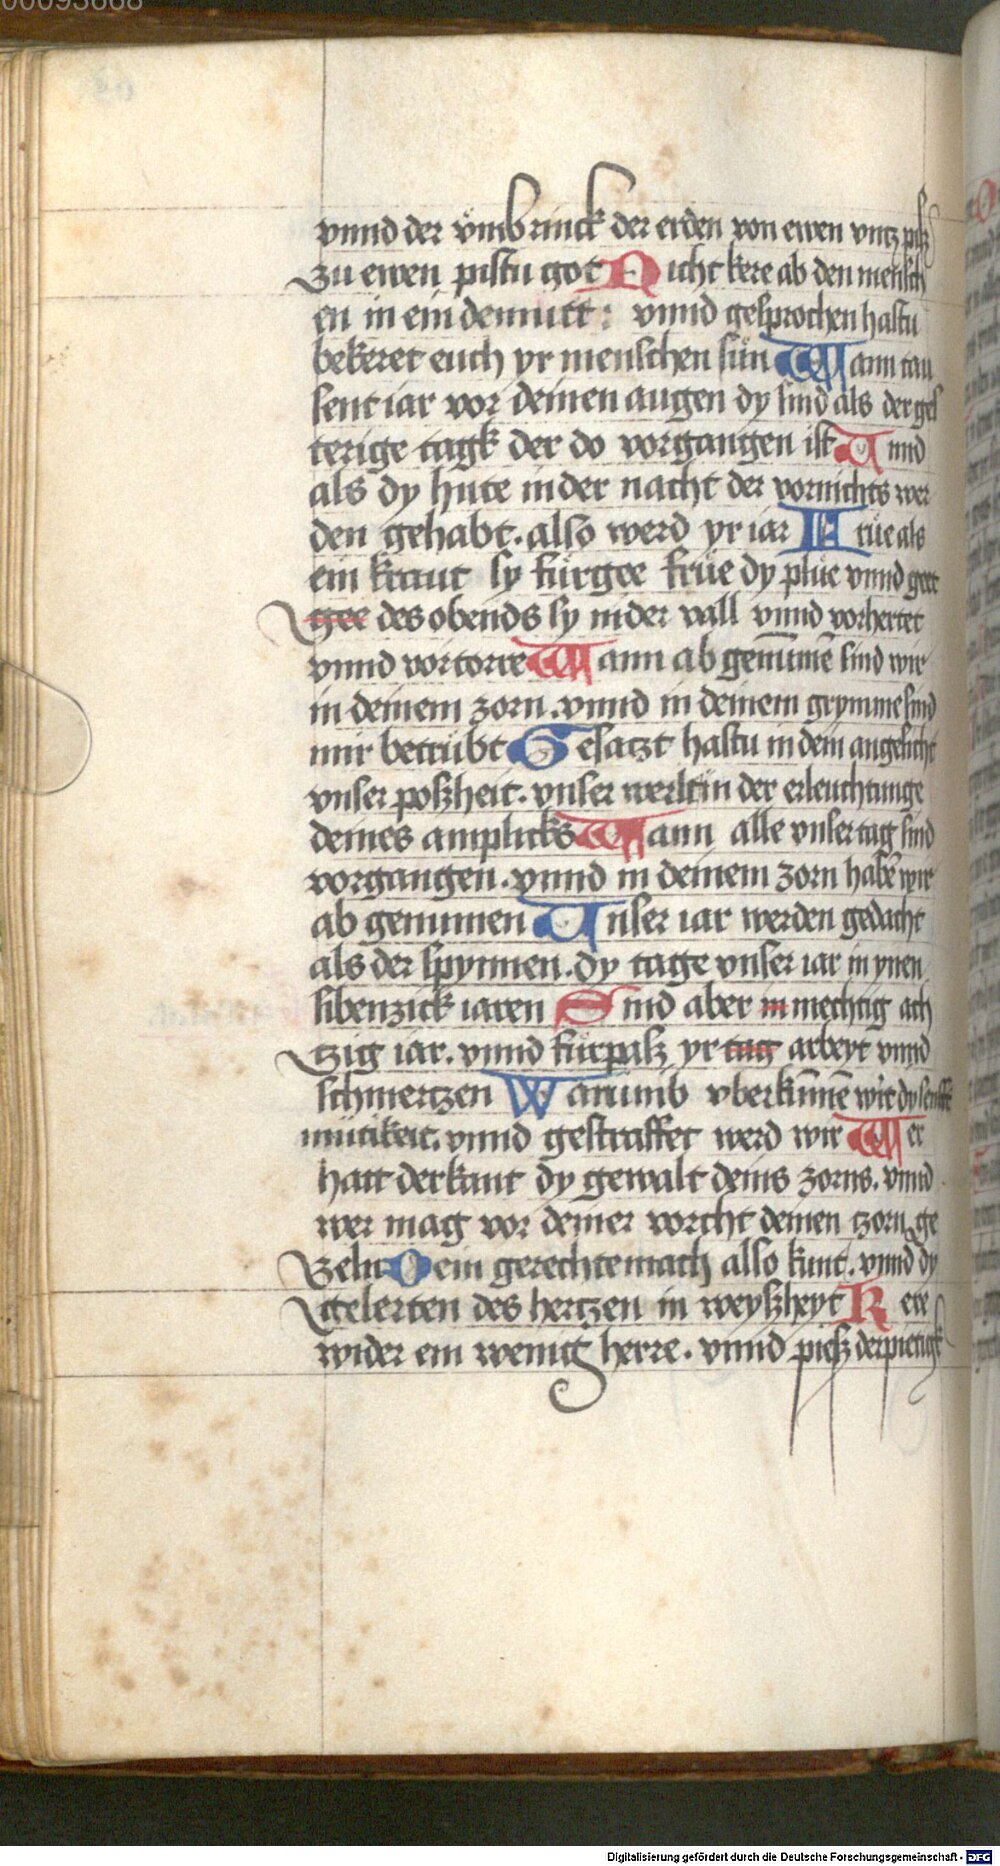 00093668
vnnd der vmbrinck der erden von ewen vntz pisz
zu ewen pistu got Nicht kere ab den mensch
en in ein demutt: vnnd gesprochen hastu
bekeret euch yr menschen sün Wann tau
sent iar vor deinen augen dy sind als der ges
terige tagk der do vorgangen ist Vnnd
als dy hute in der nacht der vornichts wer
den gehabt. also werd yr iar Frue als
ein kraut sy furgee frue dy plue vnnd geet
gee des obends sy nider vall vnnd vorhertet
vnnd vortorre Wann ab genumē sind wir
in deinem zorn. vnnd in deinem grymme sind
mir betrubt Gesatzt hastu in dein angesicht
vnser poszheit. vnser werlt in der erleuchtunge
deines amplicks Wann alle vnser tag sind
vorgangen. vnnd in deinem zorn habē wir
ab genumen Vnser iar werden gedacht
als der spynnen. dy tage vnser iar in ynen
sibenzick iaren Sind aber in mechtig ach
tzig iar. vnnd furpasz yr tag arbeyt vnnd
schmertzen Warumb vberkumē wir dy senfft
mutikeit. vnnd gestraffet werd wir Wer
hatt derkant dy gewalt deins zorns. vnnd
wer mag vor deiner vorcht deinen tzorn ge
zeln Dein gerechte mach also kunt. vnnd dy
gelerten des hertzen in weyszheyt Kere
wider ein wenig herre. vnnd pisz derpietigk
Digitalisierung gefördert durch die Deutsche Forschungsgemeinschaft - DFG